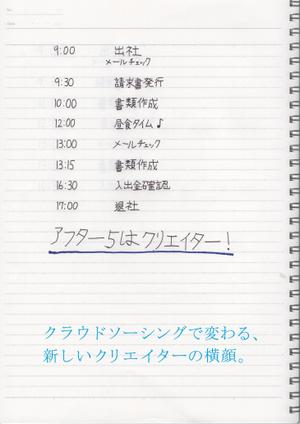 9:00 出社
メールチェック
9:30 請求書発行
10:00 書類作成
12:00 昼食タイム♪
13:00 メールチェック
13:15 書類作成
16:30 入出金確認
17:00 退社
アフター5はクリエイター!
クラウドソーシングで変わる、
新しいクリエイターの横顔。